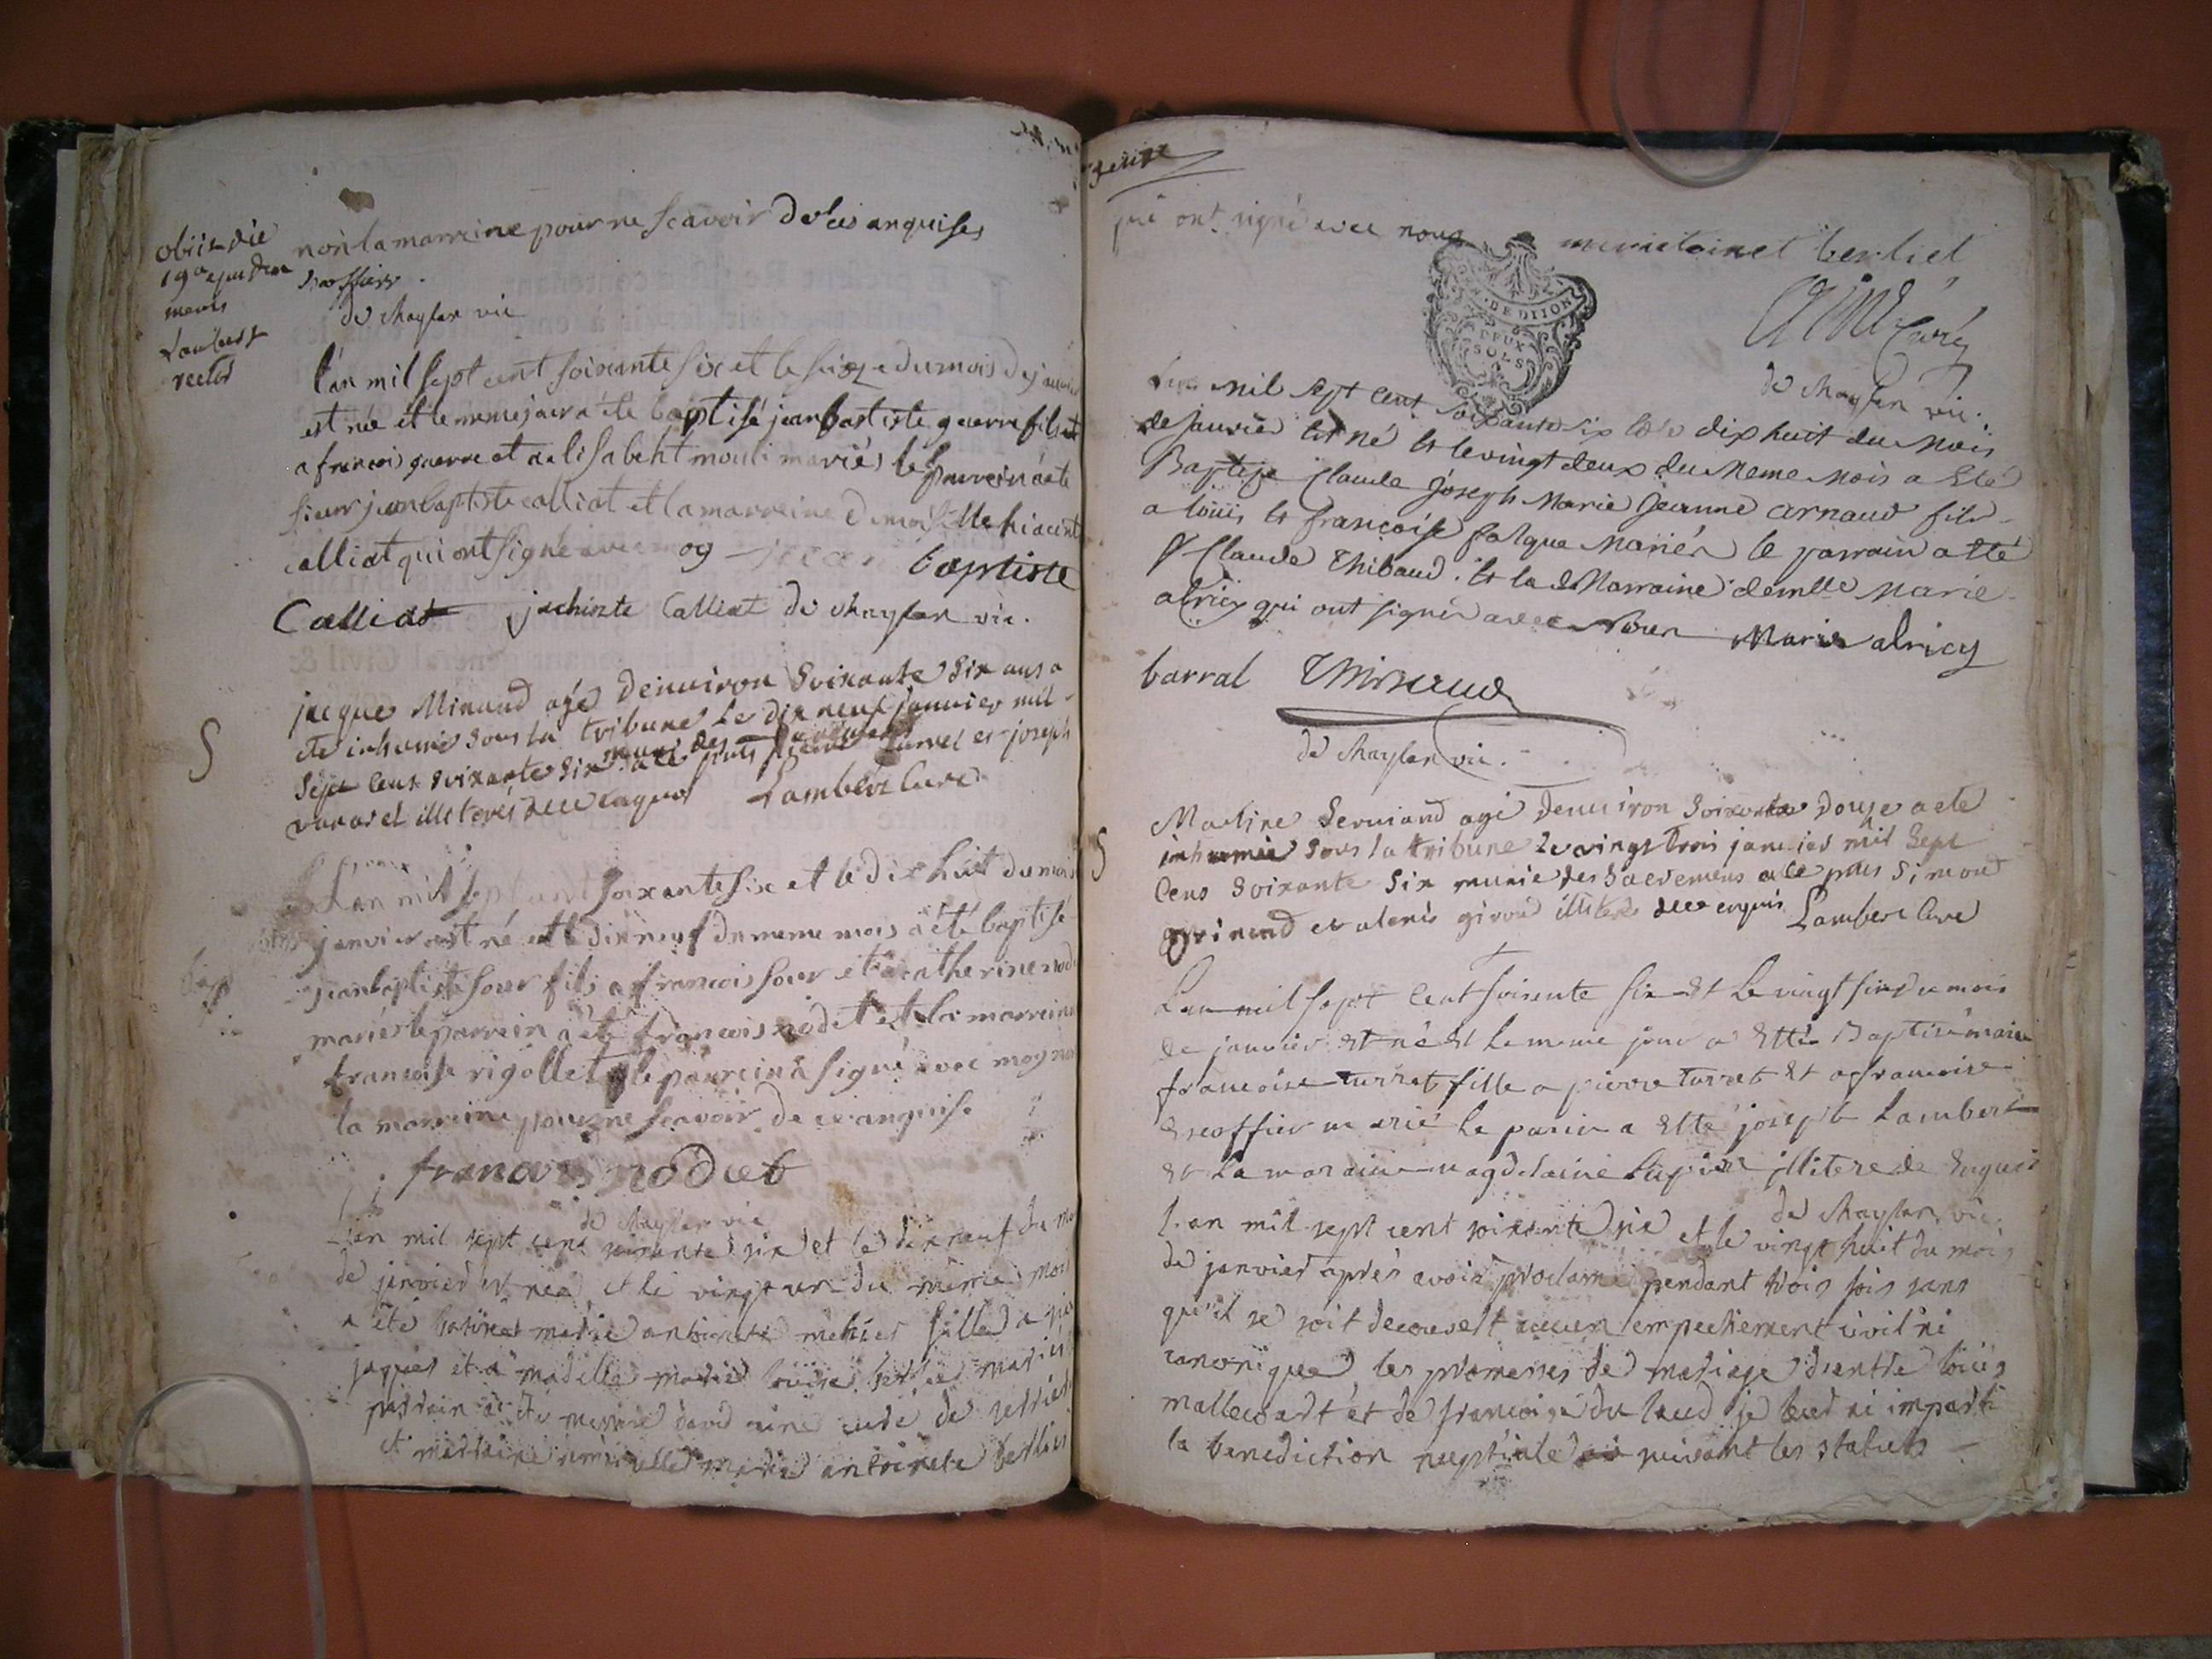 obiit die
19a ejusdem
mensis
Lambert
rector
non la marreine pour ne scavoir de ce anquises
de chaylar vic
l'an mil sept cent soixante six et le seize du mois de janvier
est née et le meme jour a été baptisé jean baptiste guerre fils
a francois guerre et a elisabeht mouli mariés le parrein a ete
sieur jean baptiste calliat et la marreine demoiselle hiacint
calliat qui ont signé avec moy jean baptiste
Calliat jachinte Calliat de chaylar vic.
S
jacque Minaud agé denuiron Soixante Six ans a
ete inhumé sous la tribune Le dix neuf januier mil
Sept Cent Soixante Six muni des Sacremens
a cé pnts pierre turrel et joseph
illiterés de ce enquis Lambert Curé
L'an mil sept cent soixante six et le dix huit du mois
janvier est né et le dix neuf du meme mois a été baptisé
jean baptiste sour fils a francois sour et a catherine nodet
mariés le parrein a été francois nodet et la marreine
francoise rigollet le parrein a signé avec moy non
la marreine pour ne scavoir de ce anquise
francois nodet
de chaylar vic
L'an mil sept cent soixante six et le dix neuf du mois
de janvier est née et le vingt un du même mois
a été batisée marie antoinete mehier fille a
jaques et a madelle marie louise berliet mariés
parrain a été messire david aine curé de
et marraine demoiselle marie antoinete berliet
seize
qui ont signé avec nous marie toinet berliet
G. DE DIJON
DEUX
SOLS
Aine Curé
de chaylar vic.
L'an mil sept cent soixante six le dix huit du mois
de janvier est né et le vingt deux du meme mois a Eté
Baptise Claude Joseph Marie Jeanne arnaud fils
a louis et francoise falque Mariés le parrain a Eté
Sr Claude Thibaud et la Marraine demlle Marie
alricy qui ont signés avec Nous Marie alricy
barral Thibaud
de chaylar vic.
S
Martine Seruiand agé denuiron Soixante douze a ete
inhumée sous la tribune Le vingt trois januier mil Sept
Cens Soixante Six munie des Sacremens a ce pnts Simond
guinand et alexis giroud illiterés de ce enquis Lambert Curé
L'an mil sept Cent soixente six et Le vingt sinq du mois
de janvier est né et Le meme jour a Etté Baptisé marie
francoise turret fille a pierre turret et a francoise
Escoffier marié le parien a Etté joseph Lambert
et La maraine magdelaine illitere de Enquis
de chaylar vic.
L'an mil sept cent soixante six et le vingt huit du mois
de janvier après avoir proclamé pendant trois fois sans
qu'il se soit decouvert aucun empechement civil ni
canonique les promesses de mariage d'entre louis
mallecourt et de francoise du laud je leur ai imparti
la benediction nuptiale suivant les statuts